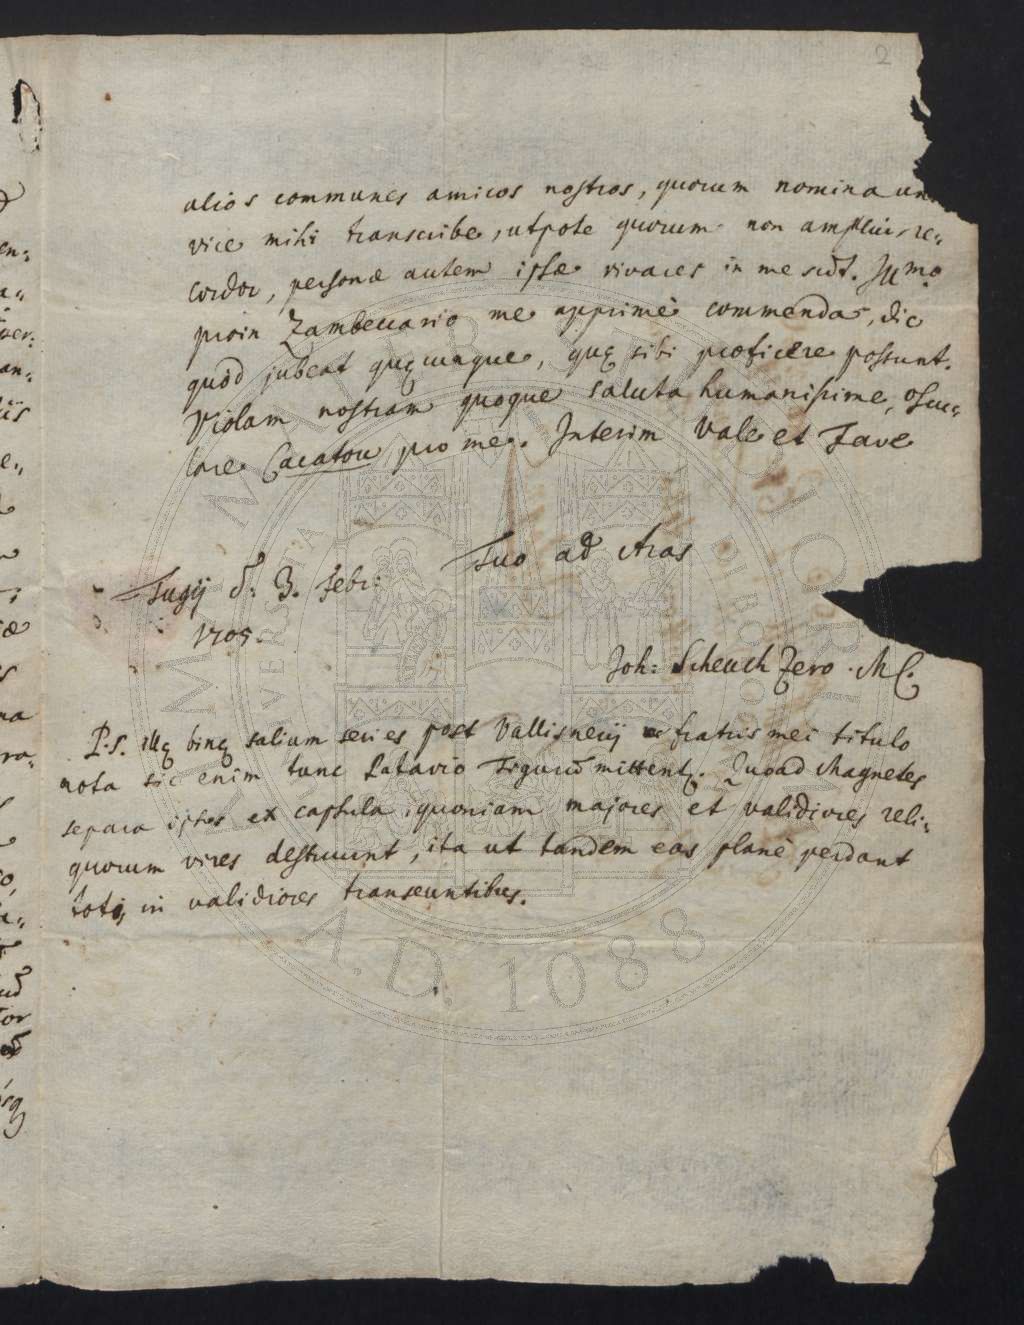 2
alios communes amicos nostros, quorum nomina un
vice mihi transcribe, utpote quorum non amplius re„
cordor, personæ autem ipsæ vivaces in me sūt. Ill.mo
proin Zambeccario me apprimè commendas, dic
quod jubeat quęcunque, quę sibi proficere possunt.
Violam nostram quoque saluta humanissime, oscu„
lare Cacatou pro me. Interim Vale et Fave
Tuo ad Aras
Tugij d. 3. Febr:
1705.
Joh: Scheuchzero. MC.
P.S. illę binę salium series post Vallisnerij fratris mei titulo
nota sic enim tunc Patavio Tigurū mittentꝫ. Quoad Magnetes
separa istos ex capsula, quoniam majores et validiores reli„
quorum vires destruunt, ita ut tandem eas planè perdant
totę in validiores transeuntibus.
ALMA MATER STUDIORUM
UNIVERSITÀ DI BOLOGNA
A.D. 1088